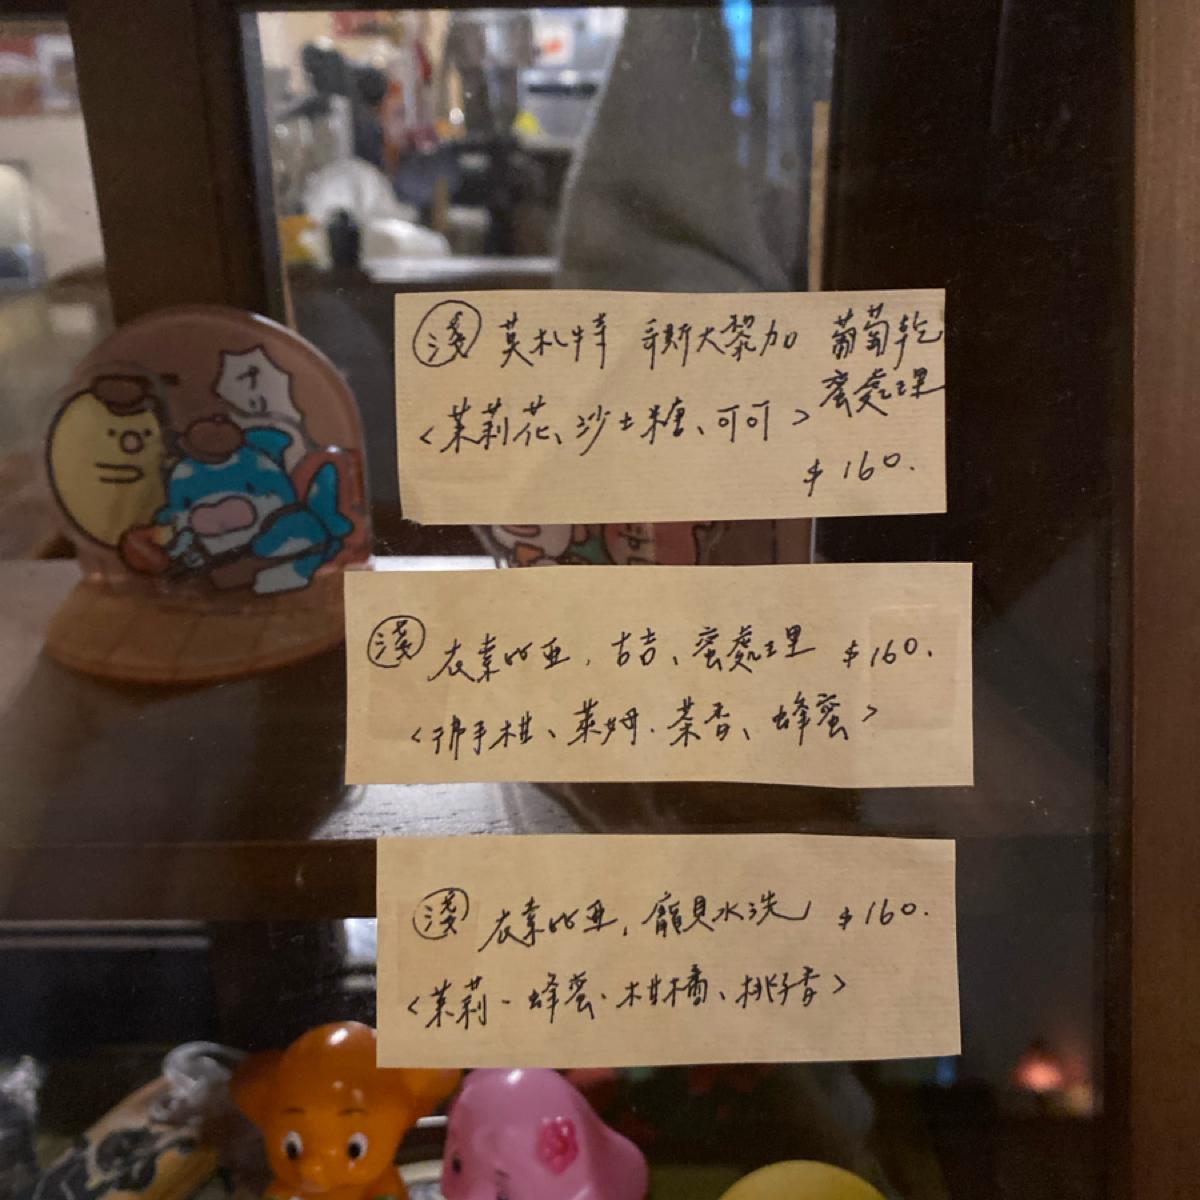 ナリ
淺 莫札特 哥斯大黎加 葡萄乾
蜜處理
<茉莉花、沙士糖、可可>
$160.
淺 衣索比亞, 古吉、蜜處理 $160.
<佛手柑、萊姆.茶香、蜂蜜>
淺 衣索比亞, 寵貝水洗 $160.
<茉莉、蜂蜜.柑橘、桃子香>